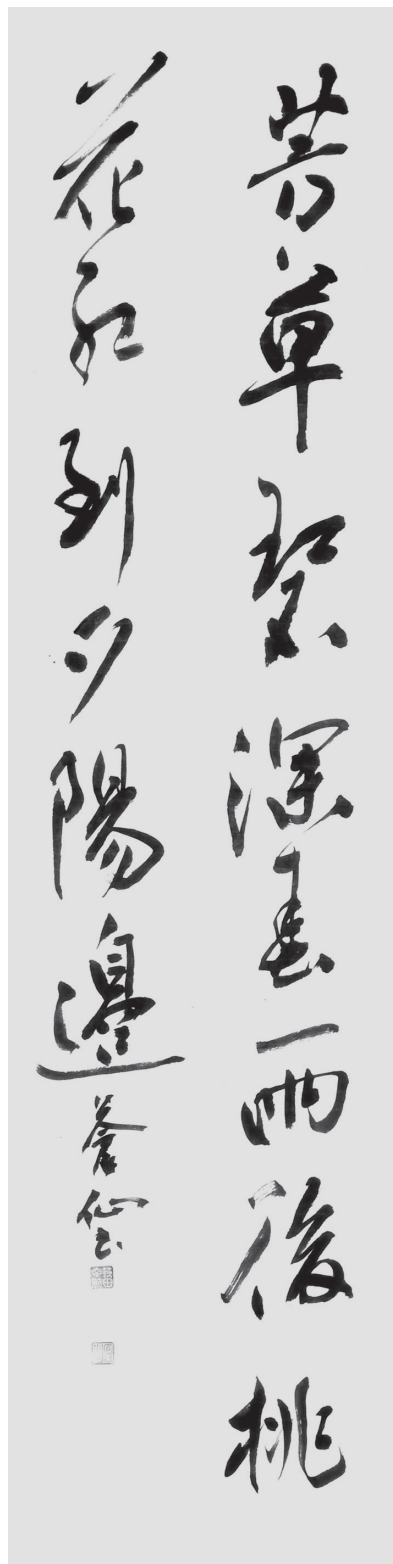 芳草碧深春雨後桃
花紅到夕陽邊蒼仙書